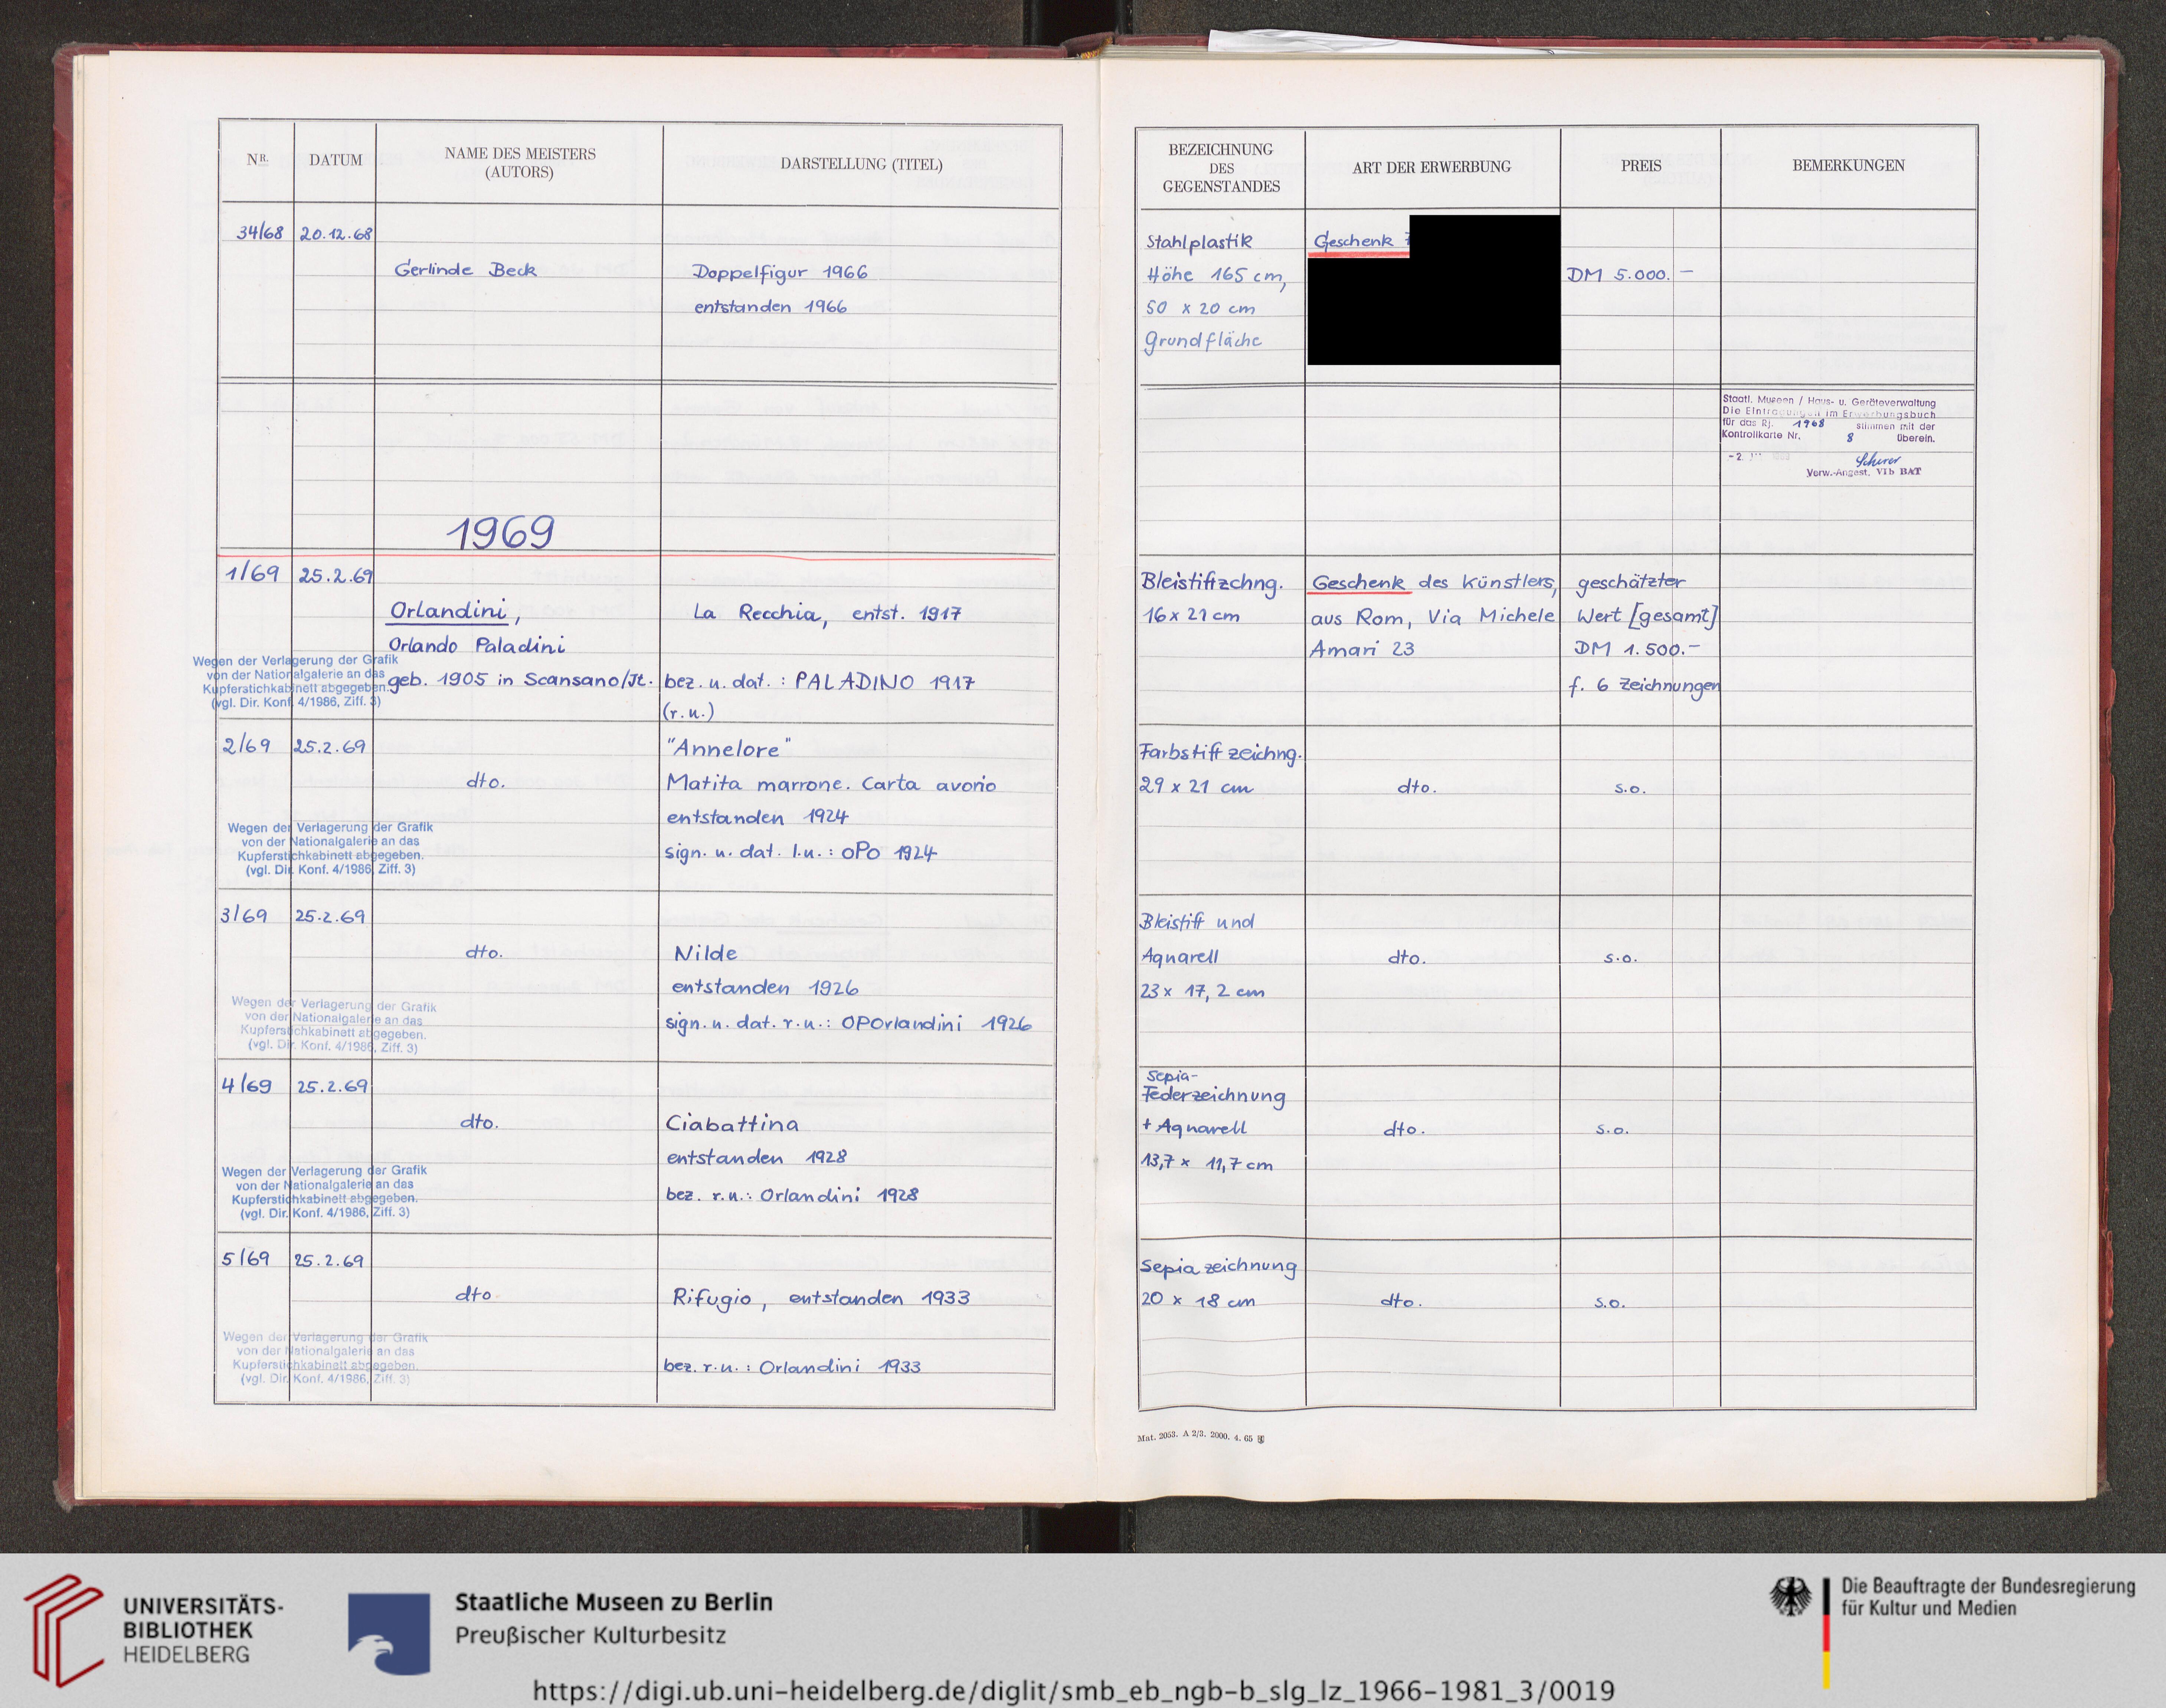 NR.
DATUM
NAME DES MEISTERS
(AUTORS)
DARSTELLUNG (TITEL)
34/68 20.12.68
Gerlinde Beck
Doppelfigur 1966
entstanden 1966
1969
1/69 25.2.69
Orlandini,
La Recchia, entst. 1917
Orlando Paladini
geb. 1905 in Scansano/It.
bez. u. dat. : PALADINO 1917
(r.u.)
Wegen der Verlagerung der Grafik
von der Nationalgalerie an das
Kupferstichkabinett abgegeben.
(vgl. Dir. Konf. 4/1986, Ziff. 3)
2/69 25.2.69
"Annelore"
dto.
Matita marrone. Carta avorio
entstanden 1924
sign. u. dat. l.u. : OPO 1924
Wegen der Verlagerung der Grafik
von der Nationalgalerie an das
Kupferstichkabinett abgegeben.
(vgl. Dir. Konf. 4/1986, Ziff. 3)
3/69 25.2.69
dto.
Nilde
entstanden 1926
sign. u. dat. r.u.: OPOrlandini 1926
Wegen der Verlagerung der Grafik
von der Nationalgalerie an das
Kupferstichkabinett abgegeben.
(vgl. Dir. Konf. 4/1986, Ziff. 3)
4/69 25.2.69
dto.
Ciabattina
entstanden 1928
bez. r.u.: Orlandini 1928
Wegen der Verlagerung der Grafik
von der Nationalgalerie an das
Kupferstichkabinett abgegeben.
(vgl. Dir. Konf. 4/1986, Ziff. 3)
5/69 25.2.69
dto.
Rifugio, entstanden 1933
bez. r.u. : Orlandini 1933
Wegen der Verlagerung der Grafik
von der Nationalgalerie an das
Kupferstichkabinett abgegeben.
(vgl. Dir. Konf. 4/1986, Ziff. 3)
BEZEICHNUNG
DES
GEGENSTANDES
ART DER ERWERBUNG
PREIS
BEMERKUNGEN
Stahlplastik
Geschenk
Höhe 165 cm,
DM 5.000.—
50 x 20 cm
Grundfläche
Staatl. Museen / Haus- u. Geräteverwaltung
Die Eintragungen im Erwerbungsbuch
für das Rj. 1968 stimmen mit der
Kontrollkarte Nr. 8 überein.
-2.
Scherer
Verw.-Angest. VIb BAT
Bleistiftzchng.
Geschenk des Künstlers,
geschätzter
16 x 21 cm
aus Rom, Via Michele
Wert [gesamt]
Amari 23
DM 1.500.-
f. 6 Zeichnungen
Farbstiftzeichng.
29 x 21 cm
dto.
s.o.
Bleistift und
Aquarell
dto.
s.o.
23 x 17,2 cm
Sepia-
Federzeichnung
+ Aquarell
dto.
s.o.
13,7 x 11,7 cm
Sepiazeichnung
20 x 18 cm
dto.
s.o.
Mat. 2053. A 2/3. 2000. 4. 65
UNIVERSITÄTS-
BIBLIOTHEK
HEIDELBERG
Staatliche Museen zu Berlin
Preußischer Kulturbesitz
Die Beauftragte der Bundesregierung
für Kultur und Medien
https://digi.ub.uni-heidelberg.de/diglit/smb_eb_ngb-b_slg_lz_1966-1981_3/0019